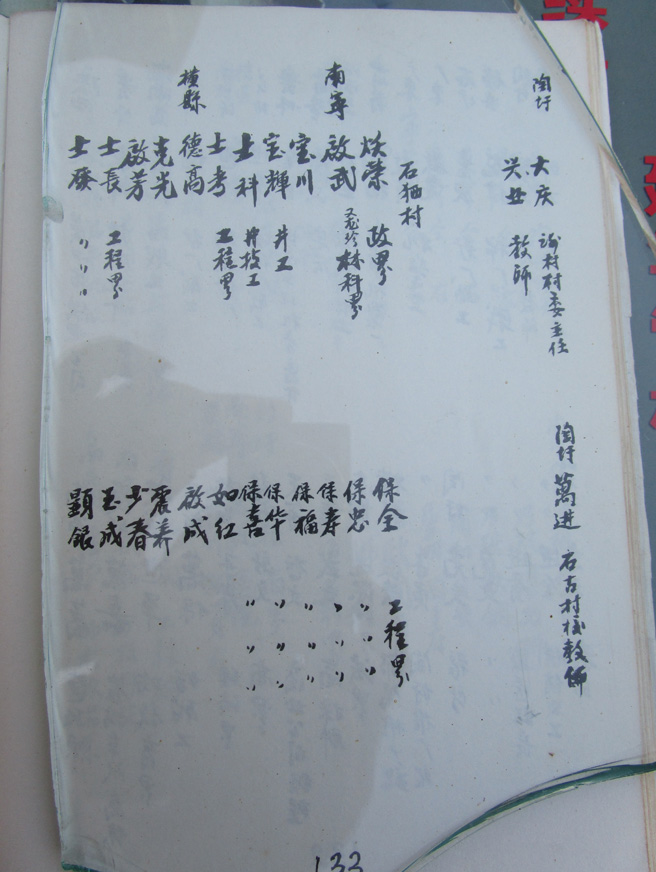 陶圩 大庆 村村委主任
兴 教師
陶圩 萬进 石古村校教師
石 村
荣 政界
南寧 啟武 林科界
宝川
宝輝 井工
士科 井技工
士考 工程界
橫縣 德高
克光
啟芳
士長 工程界
士發 〃 〃 〃
保全 工程界
保忠 〃 〃 〃
保寿 〃 〃 〃
保福 〃 〃 〃
保华 〃 〃 〃
保喜 〃 〃 〃
如红
啟成
震养
少春
玉成
顕銀
133